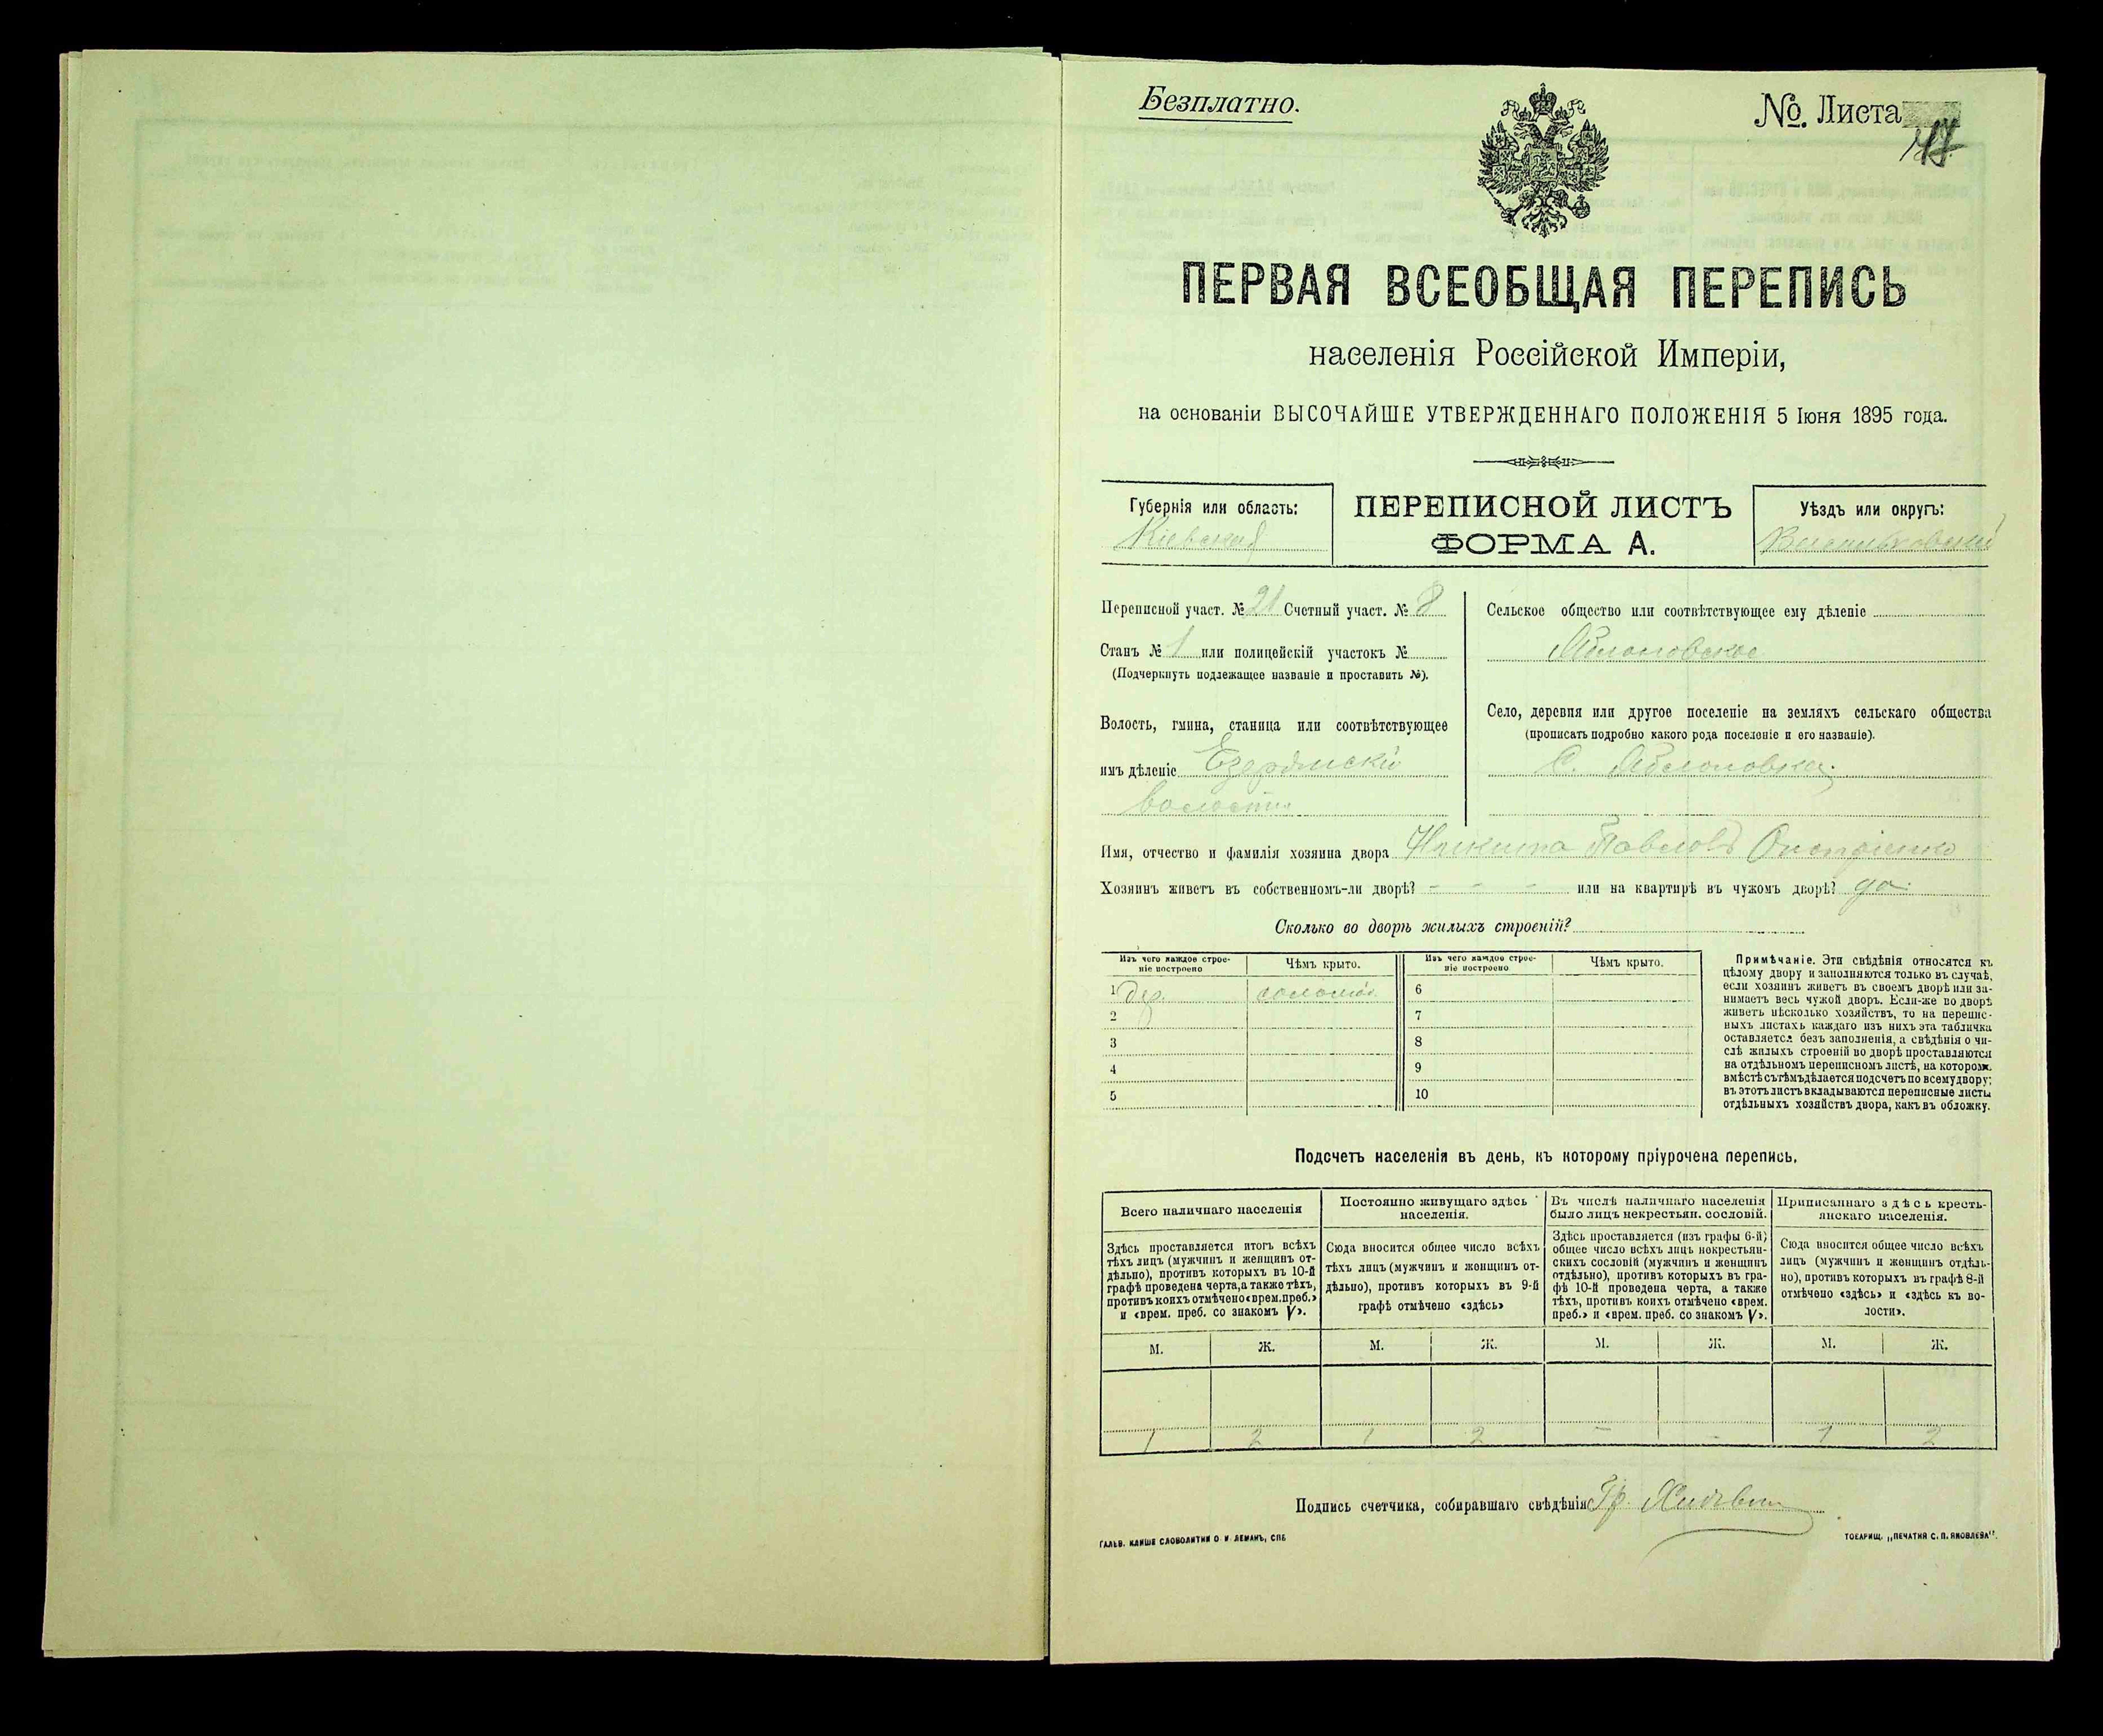 Безплатно.
№. Листа
ПЕРВАЯ ВСЕОБЩАЯ ПЕРЕПИСЬ
населенія Россійской Имперіи,
на основаніи ВЫСОЧАЙШЕ УТВЕРЖДЕННАГО ПОЛОЖЕНІЯ 5 Іюня 1895 года.
Губернія или область:
Кіевская
ПЕРЕПИСНОЙ ЛИСТЪ
ФОРМА А.
Уѣздъ или округъ:
Переписной участ. № 21 Счетный участ. № 8
Станъ № 1 или полицейскій участокъ №
(Подчеркнуть подлежащее названіе и проставить №).
Волость, гмина, станица или соотвѣтствующее
имъ дѣленіе
волости
Сельское общество или соотвѣтствующее ему дѣленіе
Яблоновское
Село, деревня или другое поселеніе на земляхъ сельскаго общества
(прописать подробно какого рода поселеніе и его названіе).
С. Яблоновка
Имя, отчество и фамилія хозяина двора Никита Павловъ
Хозяинъ живетъ въ собственномъ-ли дворѣ? - - - или на квартирѣ въ чужомъ дворѣ? да
Сколько во дворѣ жилыхъ строеній?
Изъ чего каждое строе-
ніе построено
Чѣмъ крыто.
Изъ чего каждое строе-
ніе построено
Чѣмъ крыто.
1 дер. соломой
2
3
4
5
6
7
8
9
10
Примѣчаніе. Эти свѣдѣнія относятся къ
цѣлому двору и заполняются только въ случаѣ,
если хозяинъ живетъ въ своемъ дворѣ или за-
нимаетъ весь чужой дворъ. Если-же во дворѣ
живетъ нѣсколько хозяйствъ, то на перепис-
ныхъ листахъ каждаго изъ нихъ эта табличка
оставляется безъ заполненія, а свѣдѣнія о чи-
слѣ жилыхъ строеній во дворѣ проставляются
на отдѣльномъ переписномъ листѣ, на которомъ
вмѣстѣ съ тѣмъ дѣлается подсчетъ по всему двору;
въ этотъ листъ вкладываются переписные листы
отдѣльныхъ хозяйствъ двора, какъ въ обложку.
Подсчетъ населенія въ день, къ которому пріурочена перепись.
Всего наличнаго населенія
Здѣсь проставляется итогъ всѣхъ
тѣхъ лицъ (мужчинъ и женщинъ от-
дѣльно), противъ которыхъ въ 10-й
графѣ проведена черта, а также тѣхъ,
противъ коихъ отмѣчено «врем. преб.»
и «врем. преб. со знакомъ V».
Постоянно живущаго здѣсь
населенія.
Сюда вносится общее число всѣхъ
тѣхъ лицъ (мужчинъ и женщинъ от-
дѣльно), противъ которыхъ въ 9-й
графѣ отмѣчено «здѣсь»
Въ числѣ наличнаго населенія
было лицъ некрестьян. сословій.
Здѣсь проставляется (изъ графы 6-й)
общее число всѣхъ лицъ некрестьян-
скихъ сословій (мужчинъ и женщинъ
отдѣльно), противъ которыхъ въ гра-
фѣ 10-й проведена черта, а также
тѣхъ, противъ коихъ отмѣчено «врем.
преб.» и «врем. преб. со знакомъ V».
Приписаннаго здѣсь кресть-
янскаго населенія.
Сюда вносится общее число всѣхъ
лицъ (мужчинъ и женщинъ отдѣль-
но), противъ которыхъ въ графѣ 8-й
отмѣчено «здѣсь» и «здѣсь къ во-
лости».
М. Ж. М. Ж. М. Ж. М. Ж.
1 2 1 2 - - 1 2
Подпись счетчика, собиравшаго свѣдѣнія Гр.
ГАЛЬВ. КЛИШЕ СЛОВОЛИТНИ О. И. ЛЕМАНЪ, СПБ
ТОВАРИЩ. „ПЕЧАТНЯ С. П. ЯКОВЛЕВА".